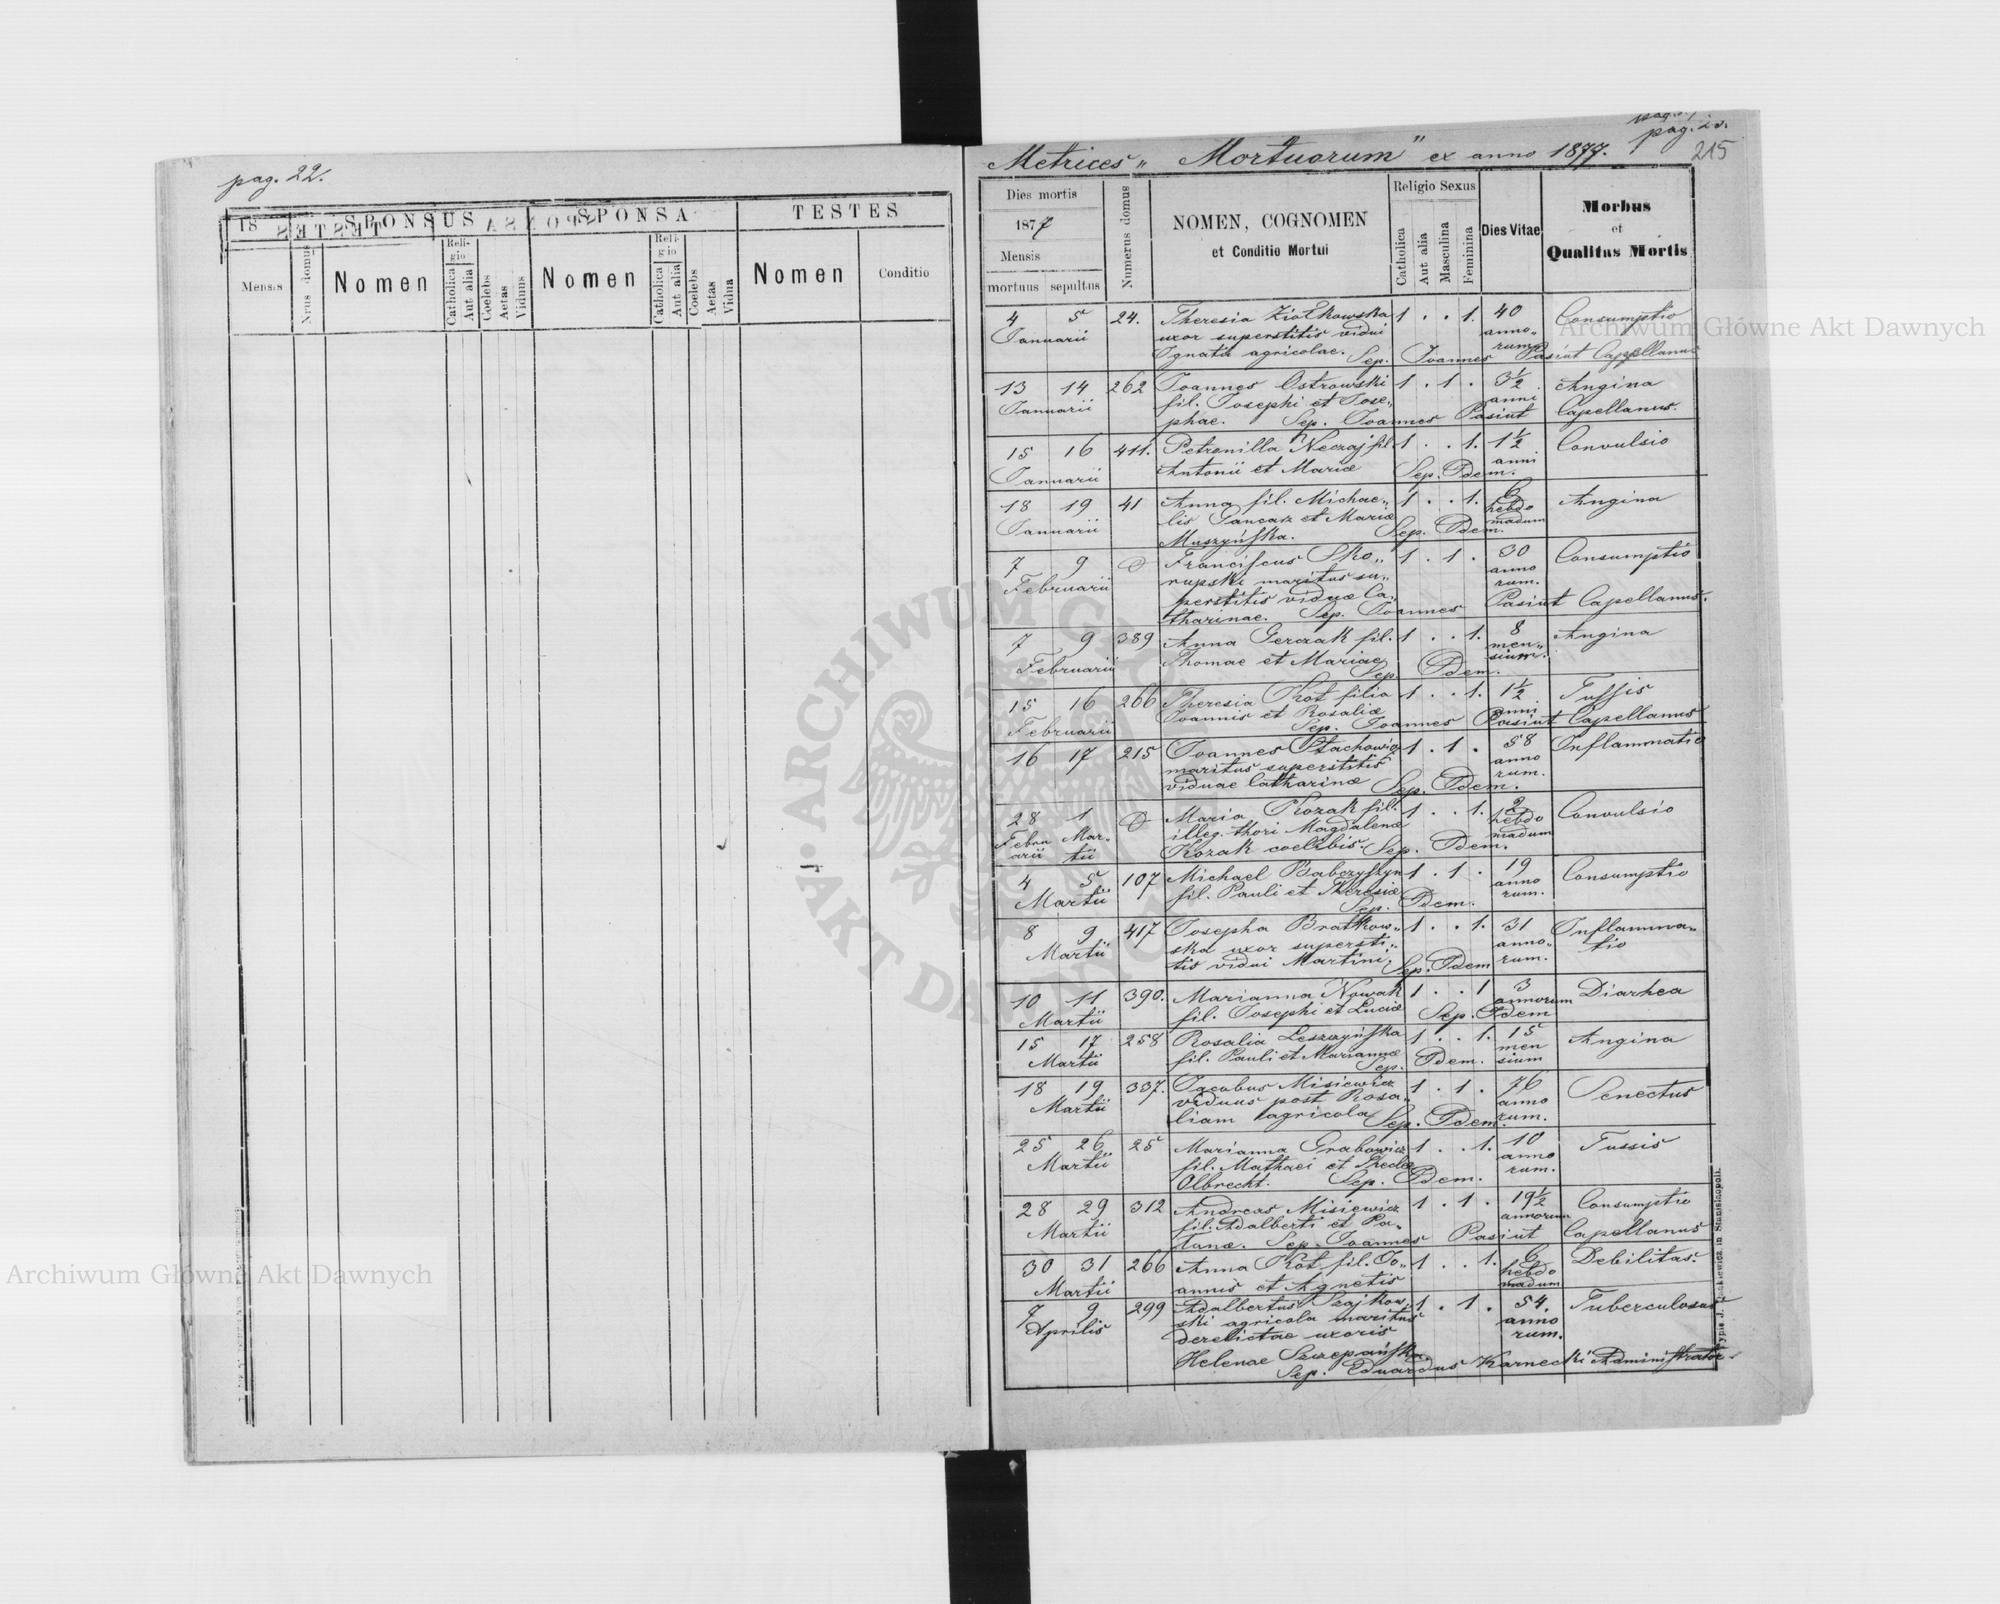 pag. 22.
18 SPONSUS SPONSA TESTES
Mensis Nrus domus Nomen Religio Catholica Aut alia Coelebs Aetas Viduus Nomen Religio Catholica Aut alia Coelebs Aetas Vidua Nomen Conditio
pag. 23.
215
Metrices „Mortuorum" ex anno 1877.
Dies mortis
1877
Mensis
mortuus sepultus
Numerus domus
NOMEN, COGNOMEN
et Conditio Mortui
Religio Sexus
Catholica Aut alia Masculina Feminina
Dies Vitae
Morbus
et
Qualitas Mortis
4 5 24. Theresia Ziołkowska 1 . . 1. 40 Consumptio
Januarii uxor superstitis vidui anno„
Ignatii agricolae. Sep. Joannes rum Pasiut Capellanus
13 14 262 Joannes Ostrowski 1 . 1 . 3½ Angina
Januarii fil. Josephi et Jose„ anni
phae. Sep. Joannes Pasiut Capellanus.
15 16 411. Petronilla Neczaj fil 1 . . 1. 1½ Convulsio
Januarii Antonii et Mariæ Sep. Idem. anni
18 19 41 Anna fil. Michae„ 1 . . 1. 6 Angina
Januarii lis Gancarz et Mariæ hebdo
Muszyńska. Sep. Idem. madum
7 9 Franciscus Sko„ 1 . 1 . 30 Consumptio
Februarii rupski maritus su„ anno
perstitis viduæ Ca„ rum.
tharinae. Sep. Joannes Pasiut Capellanus.
7 9 389 Anna Gerczak fil. 1 . . 1. 8 Angina
Februarii Thomae et Mariae men„
Sep. Idem. sium.
15 16 266 Theresia Kot filia 1 . . 1. 1½ Tussis
Februarii Joannis et Rosaliæ anni
Sep. Joannes Pasiut Capellanus
16 17 215 Joannes Stachowicz 1 . 1 . 58 Inflammatio
maritus superstitis anno
viduae Catharinæ Sep. Idem. rum.
28 1 Maria Kozak fil. 1 . . 1. 2 Convulsio
Febru Mar- illeg. thori Magdalenæ hebdo
arii tii Kozak coelibis. Sep. Idem. madum
4 5 107 Michael Babczyszyn 1 . 1 . 19 Consumptio
Martii fil. Pauli et Theresiæ anno
Sep. Idem. rum.
8 9 417 Josepha Bratkow„ 1 . . 1. 31 Inflamma„
Martii ska uxor supersti„ anno„ tio
tis vidui Martini. Sep. Idem rum.
10 11 390. Marianna Nowak 1 . . 1 3 Diarhea
Martii fil. Josephi et Luciæ Sep. Idem annorum
15 17 258 Rosalia Leszczyńska 1 . . 1. 15 Angina
Martii fil. Pauli et Mariannæ men
Sep. Idem. sium
18 19 337. Jacobus Misiewicz 1 . 1 . 76 Senectus
Martii viduus post Rosa„ anno
liam agricola Sep. Idem. rum.
25 26 25 Marianna Grabowicz 1 . . 1. 10 Tussis
Martii fil. Mathaei et Theclæ anno
Olbrecht. Sep. Idem. rum.
28 29 312 Andreas Misiewicz 1 . 1 . 19½ Consumptio
Martii fil. Adalberti et annorum
Sep. Joannes Pasiut Capellanus
30 31 266 Anna Kot fil. Jo„ 1 . . 1. 6 Debilitas.
Martii annis et Agnetis hebdo
madum
7 9 299 Adalbertus Szajkow„ 1 . 1 . 54. Tuberculosus
Aprilis ski agricola maritus anno
derelictae uxoris rum.
Helenae Szczepańska
Sep. Eduardus Karnecki Administrator
in Stanislaopoli.
Archiwum Główne Akt Dawnych
Archiwum Główne Akt Dawnych
ARCHIWUM GŁÓWNE AKT DAWNYCH